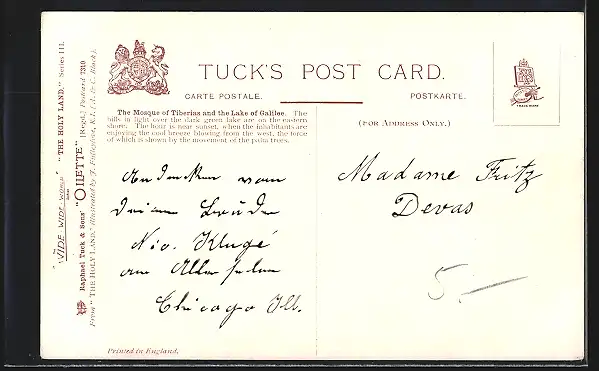 TUCK'S POST CARD.
CARTE POSTALE.
POSTKARTE.
The Mosque of Tiberias and the Lake of Galilee. The
hills in light over the dark green lake are on the eastern
shore. The hour is near sunset, when the inhabitants are
enjoying the cool breeze blowing from the west, the force
of which is shown by the movement of the palm trees.
(FOR ADDRESS ONLY.)
Andenken von
Bruder
Nic. Klugé
Chicago Ill.
Madame Fritz
Devas
5.—
"WIDE-WIDE-WORLD" "THE HOLY LAND," Series III.
Raphael Tuck & Sons' "OILETTE" [Regd.] Postcard 7310
From "THE HOLY LAND," illustrated by J. Fulleylove, R.I. (A. & C. Black).
Printed in England.
TRADE MARK